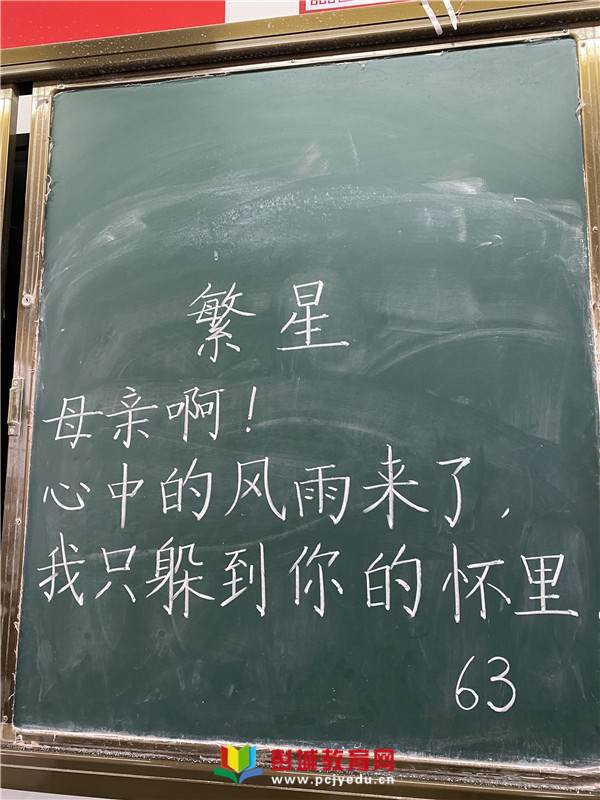 繁星
母亲啊！
心中的风雨来了，
我只躲到你的怀里.
63
彭城教育网
www.pcjyedu.cn